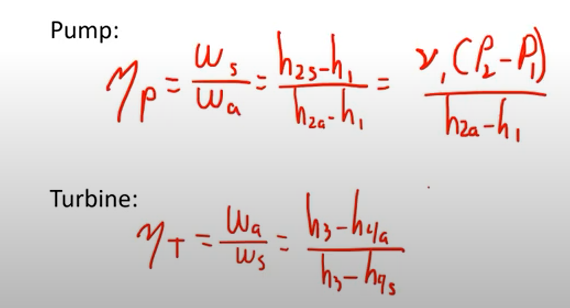 Pump:
η_P = w_s / w_a = (h_2s - h_1) / (h_2a - h_1) = ν_1 (P_2 - P_1) / (h_2a - h_1)
Turbine:
η_T = w_a / w_s = (h_3 - h_4a) / (h_3 - h_4s)